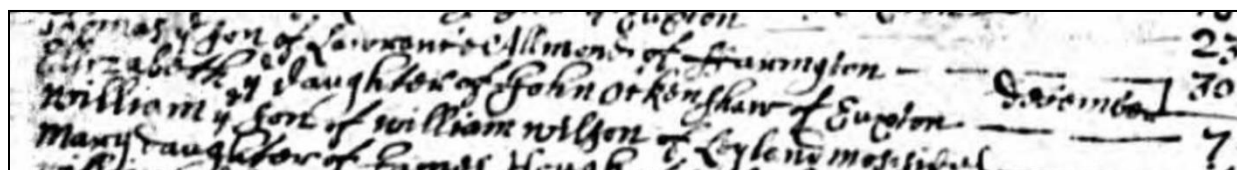 Euxton
Thomas yᵉ son of Lawrance Allmond of Farington 23
Elizabeth yᵉ Daughter of John Ockenshaw of Euxton December 30
William yᵉ son of William Wilson of Leyland 7
Mary daughter of James Hough